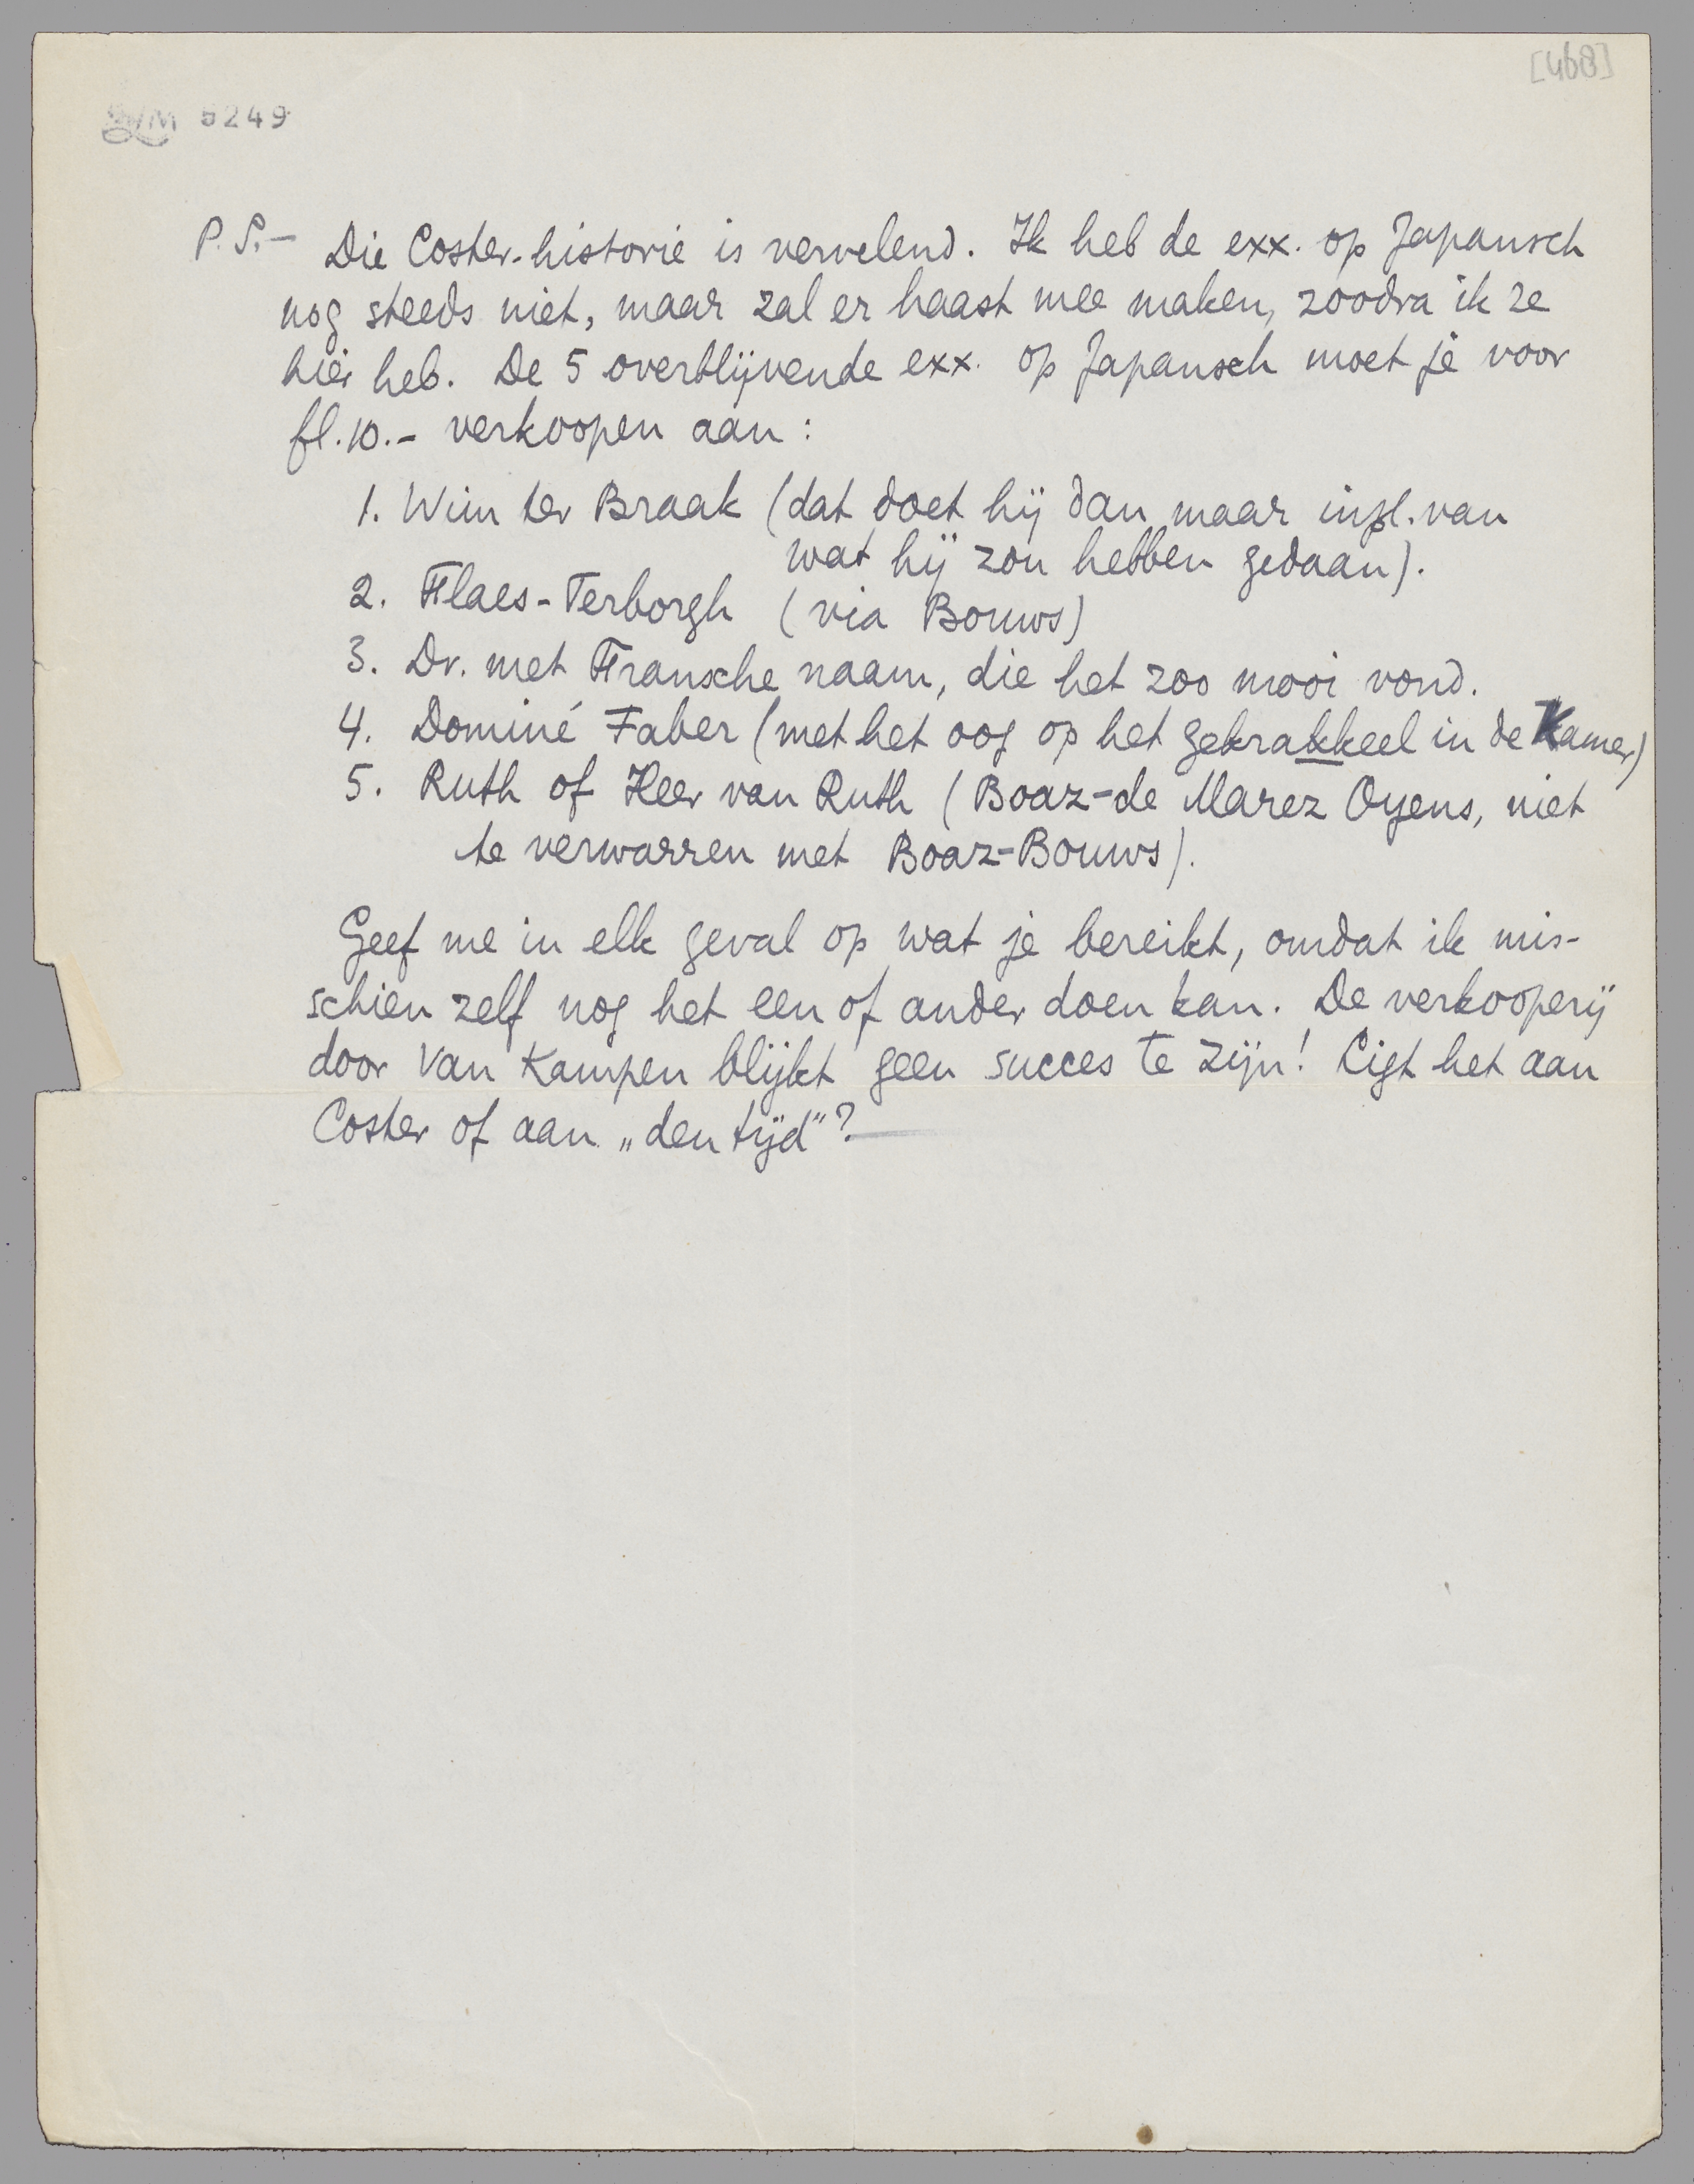 [468]
LM 5249
P.S.— Die Coster-historie is vervelend. Ik heb de exx. op Japansch
nog steeds niet, maar zal er haast mee maken, zoodra ik ze
hier heb. De 5 overblijvende exx. op Japansch moet je voor
fl.10.- verkoopen aan:
1. Wim ter Braak (dat doet hij dan maar inpl. van
wat hij zou hebben gedaan).
2. Flaes-Terborgh (via Bouws)
3. Dr. met Fransche naam, die het zoo mooi vond.
4. Dominé Faber (met het oog op het gekrakkeel in de Kamer)
5. Ruth of Heer van Ruth (Boaz-de Marez Oyens, niet
te verwarren met Boaz-Bouws).
Geef me in elk geval op wat je bereikt, omdat ik mis-
schien zelf nog het een of ander doen kan. De verkooperij
door Van Kampen blijkt geen succes te zijn! Ligt het aan
Coster of aan „den tijd"?—